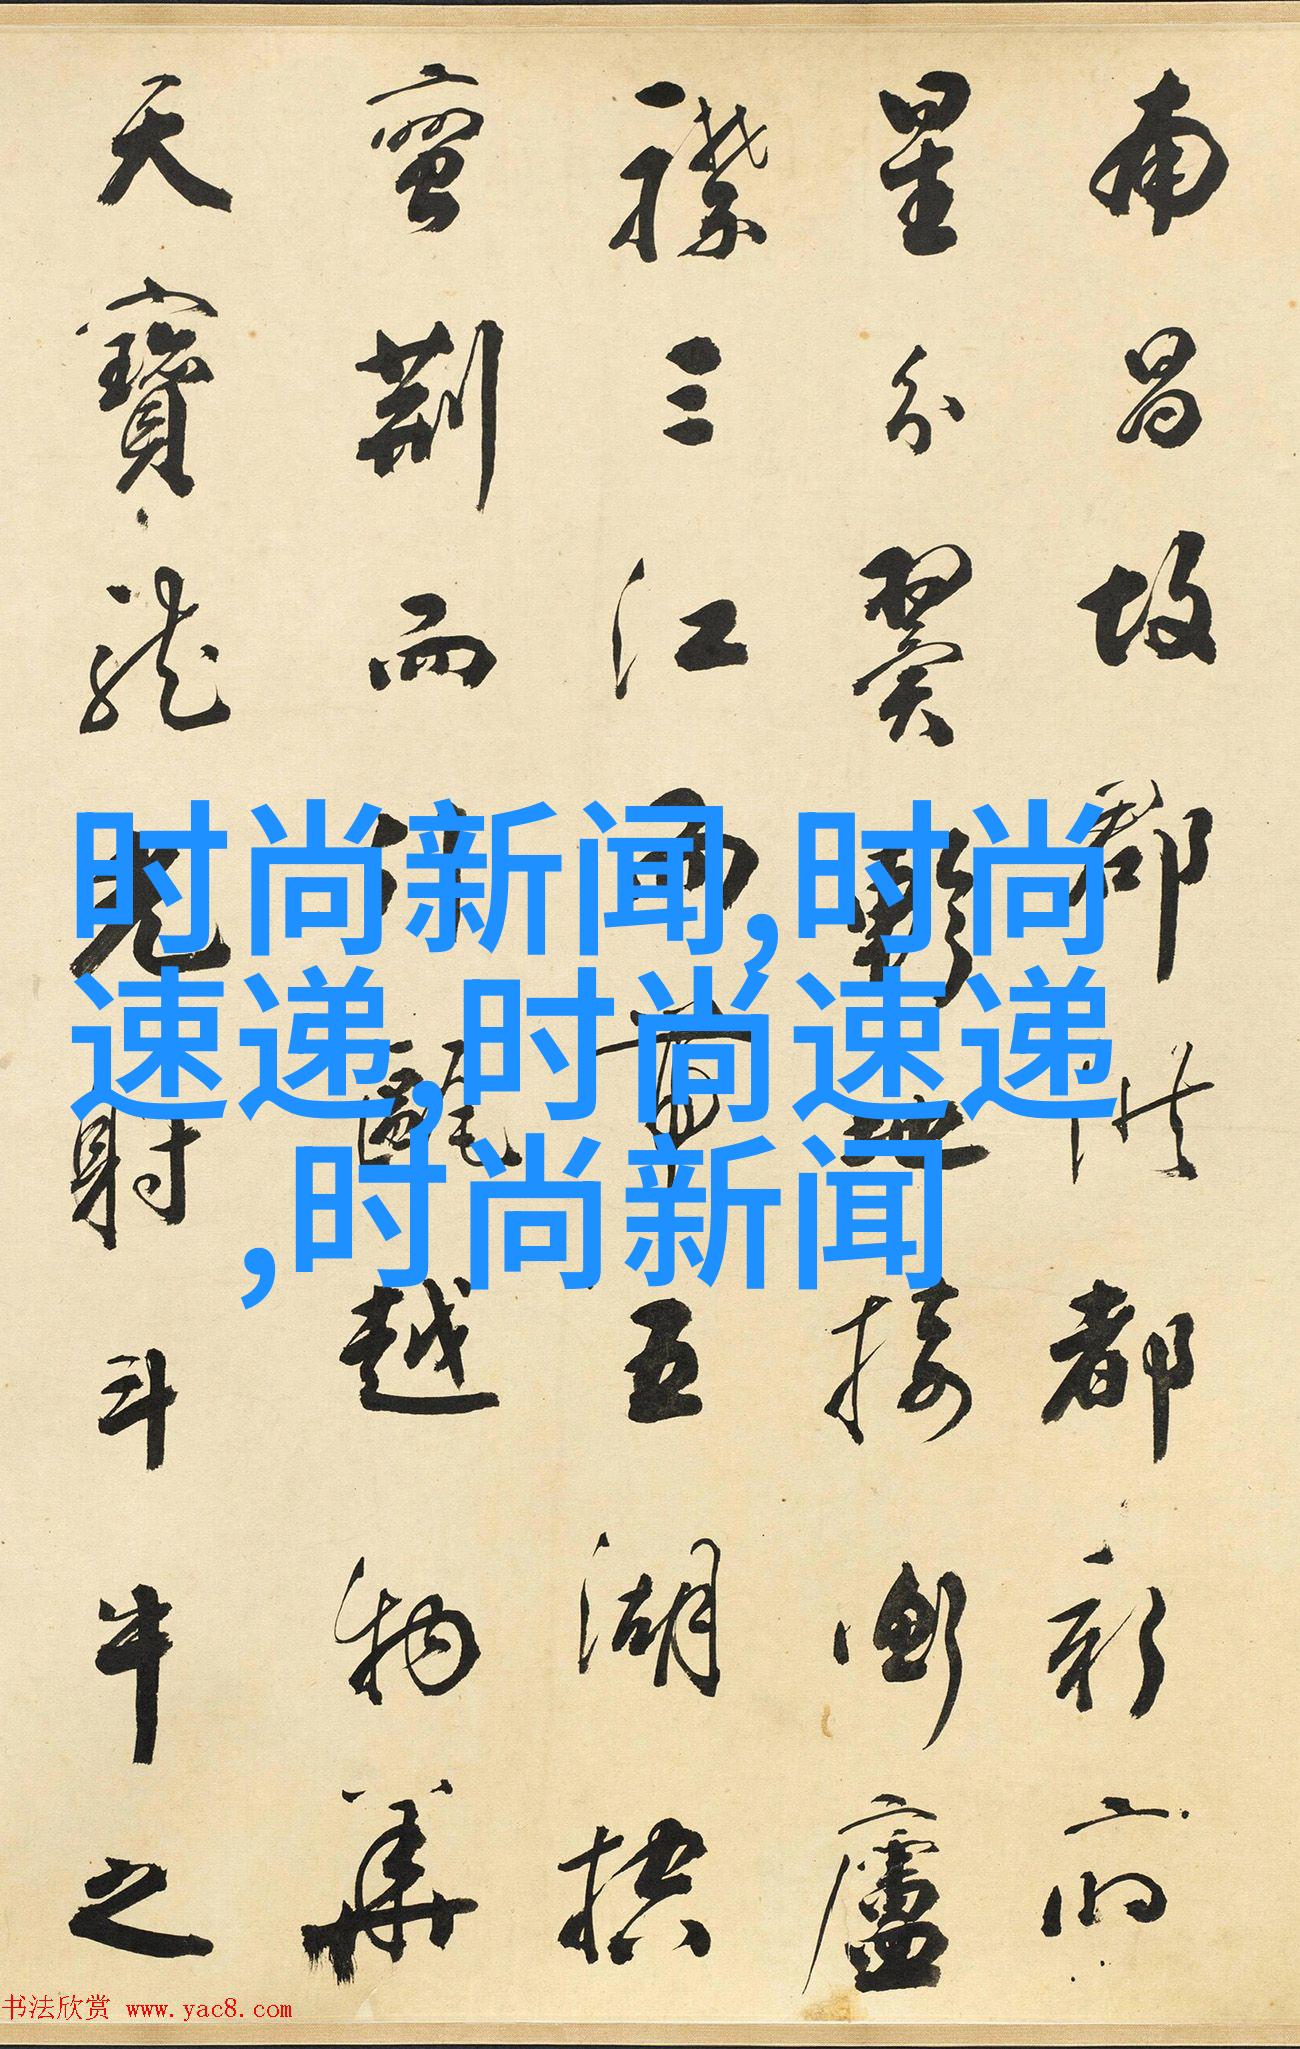 南昌故郡洪都新府
星分翼軫地接衡廬
襟三江而帶五湖控
蠻荊而引甌越物華
天寶龍光射斗牛之
时尚新闻,时尚
速递,时尚速递
,时尚新闻
书法欣赏 www.yac8.com